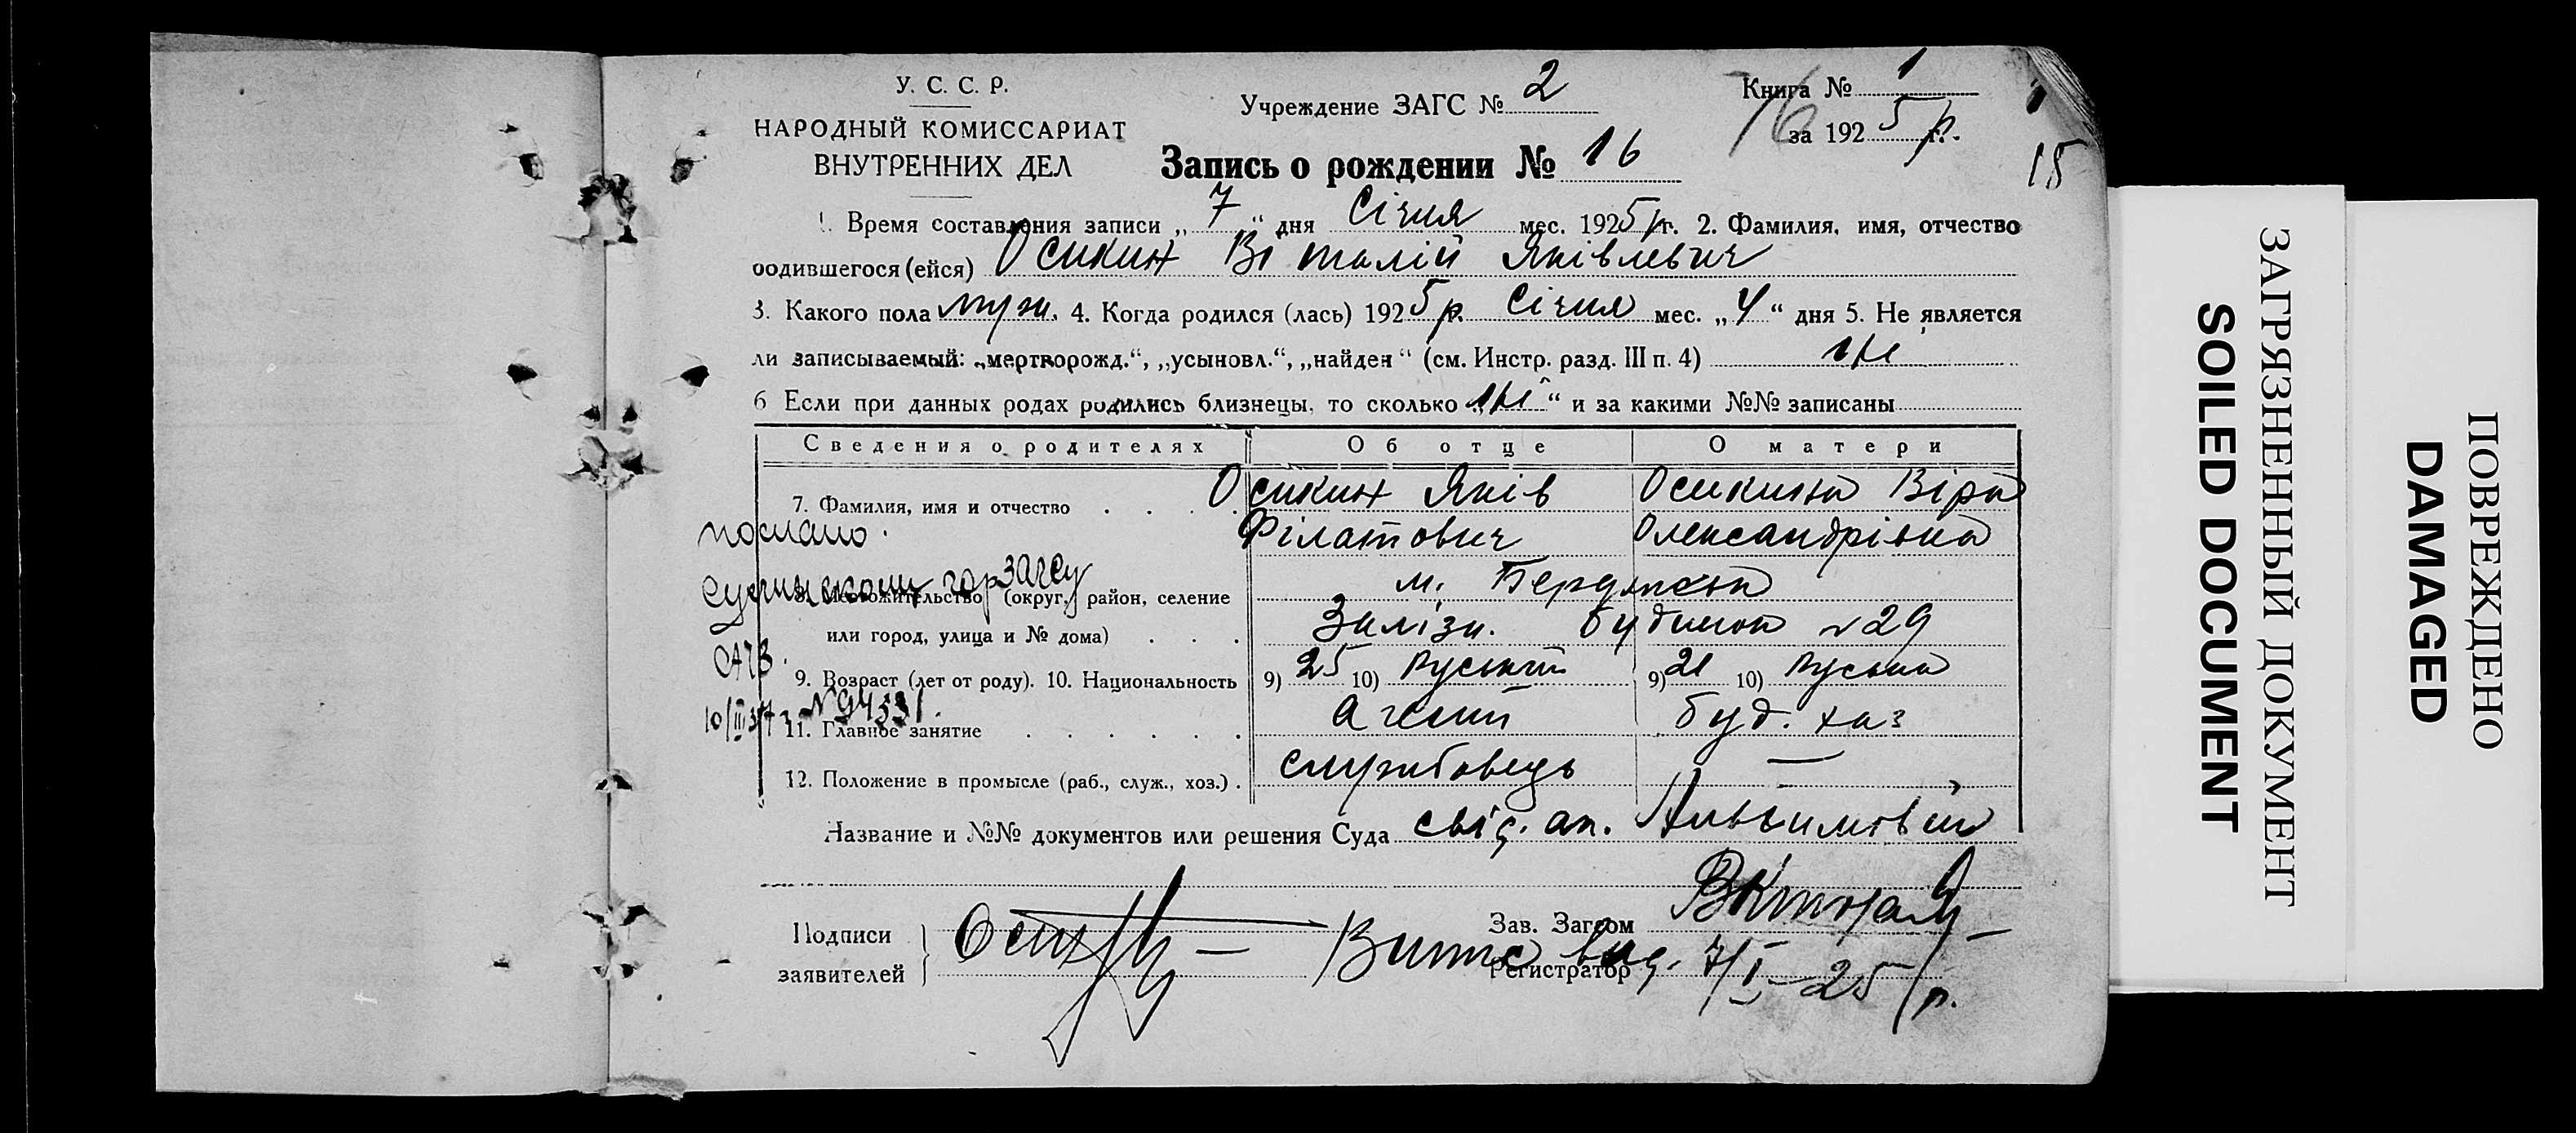 У. С. С. Р.
НАРОДНЫЙ КОМИССАРИАТ
ВНУТРЕННИХ ДЕЛ
Учреждение ЗАГС № 2
Книга № 1
76
за 1925 р г.
15
Запись о рождении № 16
1. Время составления записи „7“ дня Січня мес. 1925 р г. 2. Фамилия, имя, отчество
родившегося (ейся) Осикин Віталій Яківлевич
3. Какого пола муж. 4. Когда родился (лась) 1925 р. Січня мес. „4“ дня 5. Не является
ли записываемый: „мертворожд.“, „усыновл.“, „найден“ (см. Инстр. разд. III п. 4) ні
6 Если при данных родах родились близнецы, то сколько „ні“ и за какими №№ записаны
Сведения о родителях Об отце О матери
7. Фамилия, имя и отчество Осикин Яків Філатович Осикина Віра Олександрівна
послано
горзагсу
8. Местожительство (округ, район, селение
или город, улица и № дома) м. Бердянськ
Залізн. будинок №29
9. Возраст (лет от роду). 10. Национальность 9) 25 10) Руський 9) 21 10) Руська
10/III 37 г. №94331.
11. Главное занятие Агент буд. хаз
12. Положение в промысле (раб., служ., хоз.) службовець —
Название и №№ документов или решения Суда свід. ак.
Подписи
заявителей
Зав. Загсом
Регистратор
Витяг вид. 7/I-25 р.
ЗАГРЯЗНЕННЫЙ ДОКУМЕНТ
SOILED DOCUMENT
ПОВРЕЖДЕНО
DAMAGED